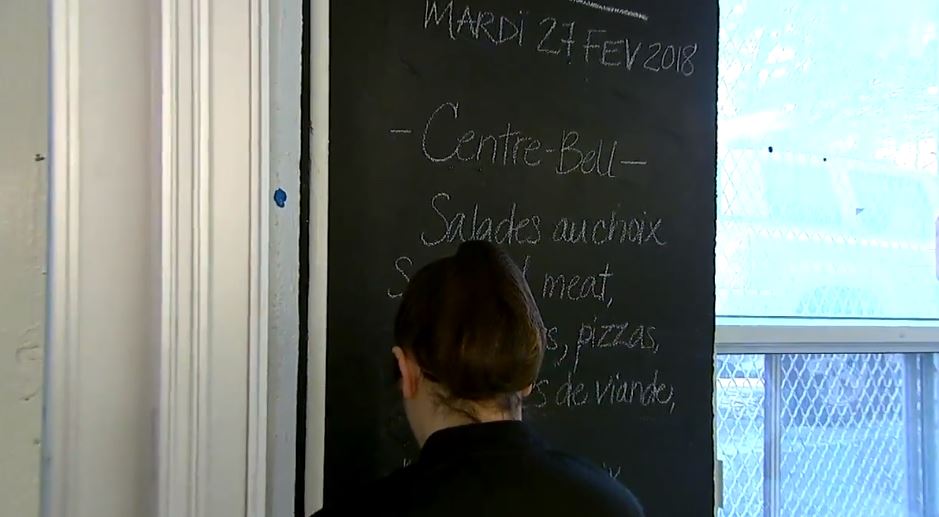 MARDI 27 FEV 2018
- Centre-Bell -
Salades au choix
meat,
pizzas,
de viande,